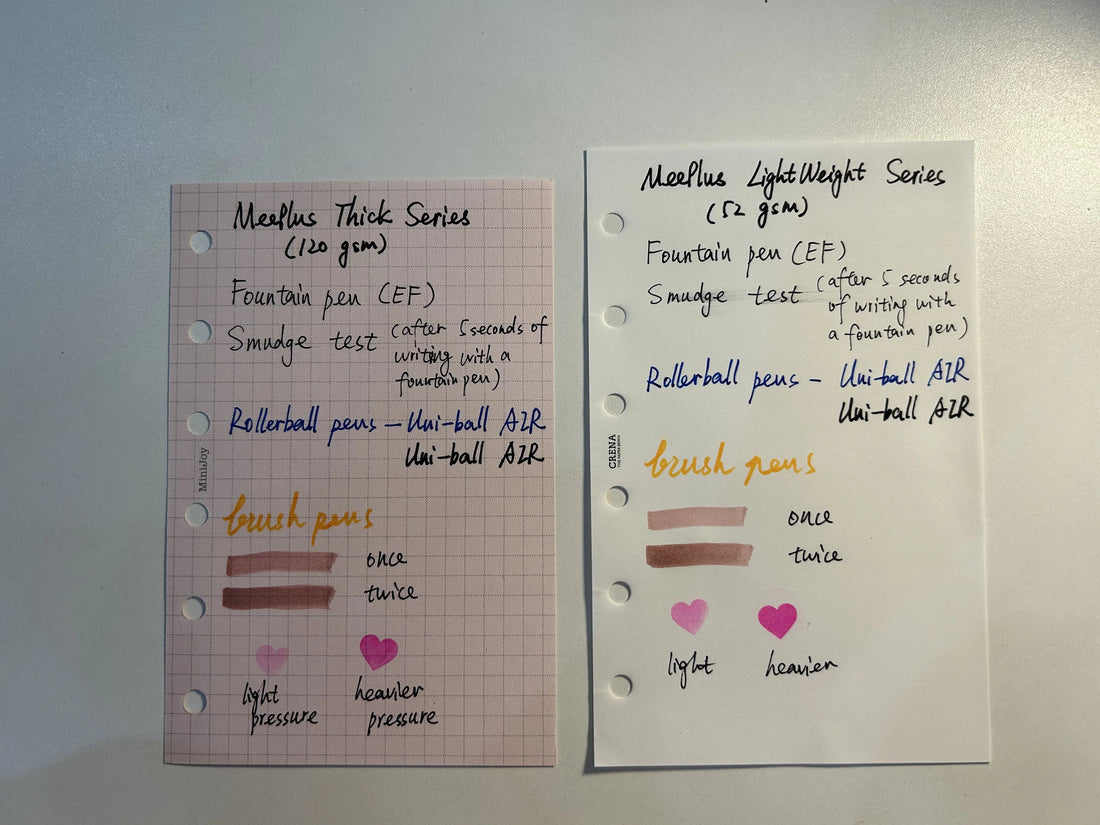 MeePlus Thick Series
(120 gsm)
Fountain pen (EF)
Smudge test (after 5 seconds of
writing with a
fountain pen)
Rollerball pens – Uni-ball AIR
Uni-ball AIR
MiniJoy
brush pens
once
twice
light
pressure
heavier
pressure
MeePlus LightWeight Series
(52 gsm)
Fountain pen (EF)
Smudge test (after 5 seconds
of writing with
a fountain pen)
Rollerball pens – Uni-ball AIR
Uni-ball AIR
CRENA
brush pens
once
twice
light
heavier